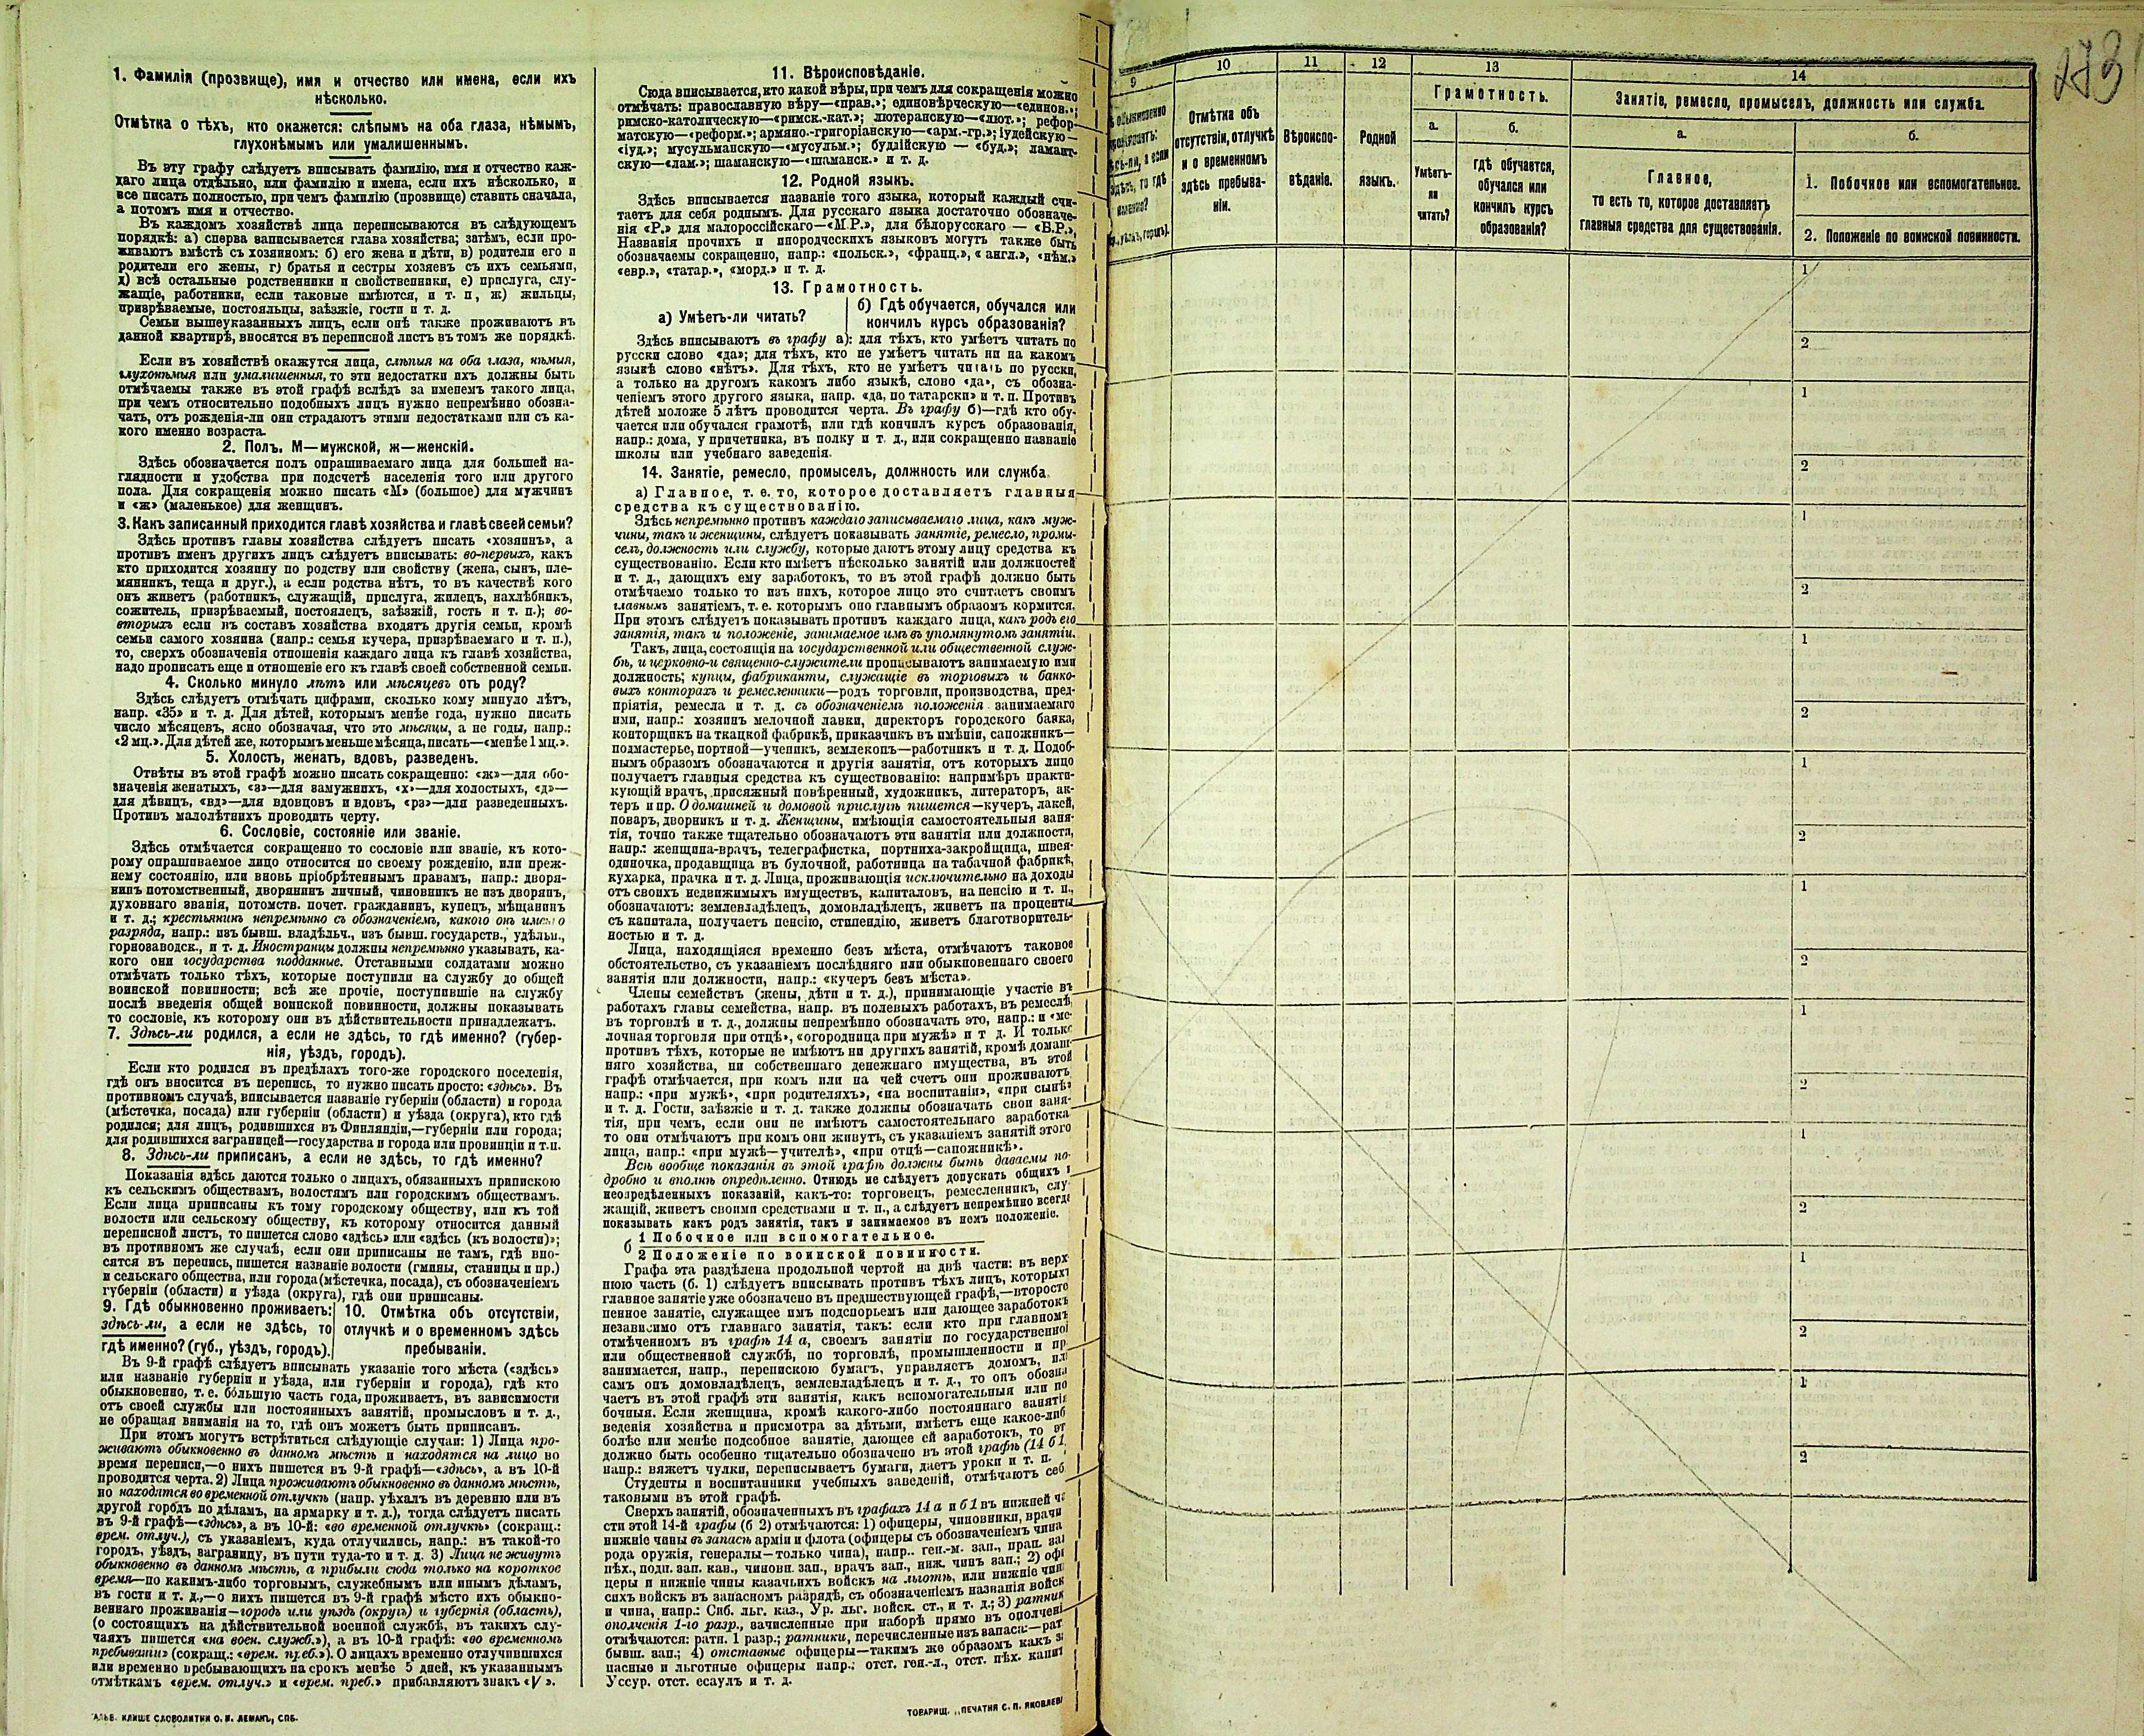 1. Фамилія (прозвище), имя и отчество или имена, если ихъ
нѣсколько.
Отмѣтка о тѣхъ, кто окажется: слѣпымъ на оба глаза, нѣмымъ,
глухонѣмымъ или умалишеннымъ.
Въ эту графу слѣдуетъ вписывать фамилію, имя и отчество каж-
даго лица отдѣльно, или фамилію и имена, если ихъ нѣсколько, и
все писать полностью, при чемъ фамилію (прозвище) ставить сначала,
а потомъ имя и отчество.
Въ каждомъ хозяйствѣ лица переписываются въ слѣдующемъ
порядкѣ: а) сперва записывается глава хозяйства; затѣмъ, если про-
живаютъ вмѣстѣ съ хозяиномъ: б) его жена и дѣти, в) родители его и
родители его жены, г) братья и сестры хозяевъ съ ихъ семьями,
д) всѣ остальные родственники и свойственники, е) прислуга, слу-
жащіе, работники, если таковые имѣются, и т. п, ж) жильцы,
призрѣваемые, постояльцы, заѣзжіе, гости и т. д.
Семьи вышеуказанныхъ лицъ, если онѣ также проживаютъ въ
данной квартирѣ, вносятся въ переписной листъ въ томъ же порядкѣ.
Если въ хозяйствѣ окажутся лица, слѣпыя на оба глаза, нѣмыя,
глухонѣмыя или умалишенныя, то эти недостатки ихъ должны быть
отмѣчаемы также въ этой графѣ вслѣдъ за именемъ такого лица,
при чемъ относительно подобныхъ лицъ нужно непремѣнно обозна-
чать, отъ рожденія-ли они страдаютъ этими недостатками или съ ка-
кого именно возраста.
2. Полъ. М—мужской, ж—женскій.
Здѣсь обозначается полъ опрашиваемаго лица для большей на-
глядности и удобства при подсчетѣ населенія того или другого
пола. Для сокращенія можно писать «М» (большое) для мужчинъ
и «ж» (маленькое) для женщинъ.
3. Какъ записанный приходится главѣ хозяйства и главѣ своей семьи?
Здѣсь противъ главы хозяйства слѣдуетъ писать «хозяинъ», а
противъ именъ другихъ лицъ слѣдуетъ вписывать: во-первыхъ, какъ
кто приходится хозяину по родству или свойству (жена, сынъ, пле-
мянникъ, теща и друг.), а если родства нѣтъ, то въ качествѣ кого
онъ живетъ (работникъ, служащій, прислуга, жилецъ, нахлѣбникъ,
сожитель, призрѣваемый, постоялецъ, заѣзжій, гость и т. п.); во-
вторыхъ если въ составъ хозяйства входятъ другія семьи, кромѣ
семьи самого хозяина (напр.: семья кучера, призрѣваемаго и т. п.),
то, сверхъ обозначенія отношенія каждаго лица къ главѣ хозяйства,
надо прописать еще и отношеніе его къ главѣ своей собственной семьи.
4. Сколько минуло лѣтъ или мѣсяцевъ отъ роду?
Здѣсь слѣдуетъ отмѣчать цифрами, сколько кому минуло лѣтъ,
напр. «35» и т. д. Для дѣтей, которымъ менѣе года, нужно писать
число мѣсяцевъ, ясно обозначая, что это мѣсяцы, а не годы, напр.:
«2 мц.». Для дѣтей же, которымъ меньше мѣсяца, писать—«менѣе 1 мц.».
5. Холостъ, женатъ, вдовъ, разведенъ.
Отвѣты въ этой графѣ можно писать сокращенно: «ж»—для обо-
значенія женатыхъ, «з»—для замужнихъ, «х»—для холостыхъ, «д»—
для дѣвицъ, «вд»—для вдовцовъ и вдовъ, «рз»—для разведенныхъ.
Противъ малолѣтнихъ проводить черту.
6. Сословіе, состояніе или званіе.
Здѣсь отмѣчается сокращенно то сословіе или званіе, къ кото-
рому опрашиваемое лицо относится по своему рожденію, или преж-
нему состоянію, или вновь пріобрѣтеннымъ правамъ, напр.: дворя-
нинъ потомственный, дворянинъ личный, чиновникъ не изъ дворянъ,
духовнаго званія, потомств. почет. гражданинъ, купецъ, мѣщанинъ
и т. д.; крестьянинъ непремѣнно съ обозначеніемъ, какого онъ именно
разряда, напр.: изъ бывш. владѣльч., изъ бывш. государств., удѣльн.,
горнозаводск., и т. д. Иностранцы должны непремѣнно указывать, ка-
кого они государства подданные. Отставными солдатами можно
отмѣчать только тѣхъ, которые поступили на службу до общей
воинской повинности; всѣ же прочіе, поступившіе на службу
послѣ введенія общей воинской повинности, должны показывать
то сословіе, къ которому они въ дѣйствительности принадлежатъ.
7. Здѣсь-ли родился, а если не здѣсь, то гдѣ именно? (губер-
нія, уѣздъ, городъ).
Если кто родился въ предѣлахъ того-же городского поселенія,
гдѣ онъ вносится въ перепись, то нужно писать просто: «здѣсь». Въ
противномъ случаѣ, вписывается названіе губерніи (области) и города
(мѣстечка, посада) или губерніи (области) и уѣзда (округа), кто гдѣ
родился; для лицъ, родившихся въ Финляндіи,—губерніи или города;
для родившихся заграницей—государства и города или провинціи и т.п.
8. Здѣсь-ли приписанъ, а если не здѣсь, то гдѣ именно?
Показанія здѣсь даются только о лицахъ, обязанныхъ припискою
къ сельскимъ обществамъ, волостямъ или городскимъ обществамъ.
Если лица приписаны къ тому городскому обществу, или къ той
волости или сельскому обществу, къ которому относится данный
переписной листъ, то пишется слово «здѣсь» или «здѣсь (къ волости)»;
въ противномъ же случаѣ, если они приписаны не тамъ, гдѣ вно-
сятся въ перепись, пишется названіе волости (гмины, станицы и пр.)
и сельскаго общества, или города (мѣстечка, посада), съ обозначеніемъ
губерніи (области) и уѣзда (округа), гдѣ они приписаны.
9. Гдѣ обыкновенно проживаетъ:
здѣсь-ли, а если не здѣсь, то
гдѣ именно? (губ., уѣздъ, городъ).
10. Отмѣтка объ отсутствіи,
отлучкѣ и о временномъ здѣсь
пребываніи.
Въ 9-й графѣ слѣдуетъ вписывать указаніе того мѣста («здѣсь»
или названіе губерніи и уѣзда, или губерніи и города), гдѣ кто
обыкновенно, т. е. бо́льшую часть года, проживаетъ, въ зависимости
отъ своей службы или постоянныхъ занятій, промысловъ и т. д.,
не обращая вниманія на то, гдѣ онъ можетъ быть приписанъ.
При этомъ могутъ встрѣтиться слѣдующіе случаи: 1) Лица про-
живаютъ обыкновенно въ данномъ мѣстѣ и находятся на лицо во
время переписи,—о нихъ пишется въ 9-й графѣ—«здѣсь», а въ 10-й
проводится черта. 2) Лица проживаютъ обыкновенно въ данномъ мѣстѣ,
но находятся во временной отлучкѣ (напр. уѣхалъ въ деревню или въ
другой городъ по дѣламъ, на ярмарку и т. д.), тогда слѣдуетъ писать
въ 9-й графѣ—«здѣсь», а въ 10-й: «во временной отлучкѣ» (сокращ.:
врем. отлуч.), съ указаніемъ, куда отлучились, напр.: въ такой-то
городъ, уѣздъ, заграницу, въ пути туда-то и т. д. 3) Лица не живутъ
обыкновенно въ данномъ мѣстѣ, а прибыли сюда только на короткое
время—по какимъ-либо торговымъ, служебнымъ или инымъ дѣламъ,
въ гости и т. д.,—о нихъ пишется въ 9-й графѣ мѣсто ихъ обыкно-
веннаго проживанія—городъ или уѣздъ (округъ) и губернія (область),
(о состоящихъ на дѣйствительной военной службѣ, въ такихъ слу-
чаяхъ пишется «на воен. служб.»), а въ 10-й графѣ: «во временномъ
пребываніи» (сокращ.: «врем. преб.»). О лицахъ временно отлучившихся
или временно пребывающихъ на срокъ менѣе 5 дней, къ указаннымъ
отмѣткамъ «врем. отлуч.» и «врем. преб.» прибавляютъ знакъ «V».
КЛИШЕ СЛОВОЛИТНИ О. И. ЛЕМАНЪ, СПБ.
11. Вѣроисповѣданіе.
Сюда вписывается, кто какой вѣры, при чемъ для сокращенія можно
отмѣчать: православную вѣру—«прав.»; единовѣрческую—«единов.»;
римско-католическую—«римск.-кат.»; лютеранскую—«лют.»; рефор-
матскую—«реформ.»; армяно.-григоріанскую—«арм.-гр.»; іудейскую—
«іуд.»; мусульманскую—«мусульм.»; буддійскую — «буд.»; ламаит-
скую—«лам.»; шаманскую—«шаманск.» и т. д.
12. Родной языкъ.
Здѣсь вписывается названіе того языка, который каждый счи-
таетъ для себя роднымъ. Для русскаго языка достаточно обозначе-
нія «Р.» для малороссійскаго—«М.Р.», для бѣлорусскаго — «Б.Р.»,
Названія прочихъ и инородческихъ языковъ могутъ также быть
обозначаемы сокращенно, напр.: «польск.», «франц.», «англ.», «нѣм.»
«евр.», «татар.», «морд.» и т. д.
13. Грамотность.
а) Умѣетъ-ли читать?
б) Гдѣ обучается, обучался или
кончилъ курсъ образованія?
Здѣсь вписываютъ въ графу а): для тѣхъ, кто умѣетъ читать по
русски слово «да»; для тѣхъ, кто не умѣетъ читать ни на какомъ
языкѣ слово «нѣтъ». Для тѣхъ, кто не умѣетъ читать по русски,
а только на другомъ какомъ либо языкѣ, слово «да», съ обозна-
ченіемъ этого другого языка, напр. «да, по татарски» и т. п. Противъ
дѣтей моложе 5 лѣтъ проводится черта. Въ графу б)—гдѣ кто обу-
чается или обучался грамотѣ, или гдѣ кончилъ курсъ образованія,
напр.: дома, у причетника, въ полку и т. д., или сокращенно названіе
школы или учебнаго заведенія.
14. Занятіе, ремесло, промыселъ, должность или служба.
а) Главное, т. е. то, которое доставляетъ главныя
средства къ существованію.
Здѣсь непремѣнно противъ каждаго записываемаго лица, какъ муж-
чины, такъ и женщины, слѣдуетъ показывать занятіе, ремесло, промы-
селъ, должность или службу, которые даютъ этому лицу средства къ
существованію. Если кто имѣетъ нѣсколько занятій или должностей
и т. д., дающихъ ему заработокъ, то въ этой графѣ должно быть
отмѣчаемо только то изъ нихъ, которое лицо это считаетъ своимъ
главнымъ занятіемъ, т. е. которымъ оно главнымъ образомъ кормится.
При этомъ слѣдуетъ показывать противъ каждаго лица, какъ родъ его
занятія, такъ и положеніе, занимаемое имъ въ упомянутомъ занятіи.
Такъ, лица, состоящія на государственной или общественной служ-
бѣ, и церковно-и священно-служители прописываютъ занимаемую ими
должность; купцы, фабриканты, служащіе въ торговыхъ и банко-
выхъ конторахъ и ремесленники—родъ торговли, производства, пред-
пріятія, ремесла и т. д. съ обозначеніемъ положенія занимаемаго
ими, напр.: хозяинъ мелочной лавки, директоръ городского банка,
конторщикъ на ткацкой фабрикѣ, приказчикъ въ имѣніи, сапожникъ—
подмастерье, портной—ученикъ, землекопъ—работникъ и т. д. Подоб-
нымъ образомъ обозначаются и другія занятія, отъ которыхъ лицо
получаетъ главныя средства къ существованію: напримѣръ практи-
кующій врачъ, присяжный повѣренный, художникъ, литераторъ, ак-
теръ и пр. О домашней и домовой прислугѣ пишется—кучеръ, лакей,
поваръ, дворникъ и т. д. Женщины, имѣющія самостоятельныя заня-
тія, точно также тщательно обозначаютъ эти занятія или должности,
напр.: женщина-врачъ, телеграфистка, портниха-закройщица, швея-
одиночка, продавщица въ булочной, работница на табачной фабрикѣ,
кухарка, прачка и т. д. Лица, проживающія исключительно на доходы
отъ своихъ недвижимыхъ имуществъ, капиталовъ, на пенсію и т. п.,
обозначаютъ: землевладѣлецъ, домовладѣлецъ, живетъ на проценты
съ капитала, получаетъ пенсію, стипендію, живетъ благотворитель-
ностью и т. д.
Лица, находящіяся временно безъ мѣста, отмѣчаютъ таковое
обстоятельство, съ указаніемъ послѣдняго или обыкновеннаго своего
занятія или должности, напр.: «кучеръ безъ мѣста».
Члены семействъ (жены, дѣти и т. д.), принимающіе участіе въ
работахъ главы семейства, напр. въ полевыхъ работахъ, въ ремеслѣ,
въ торговлѣ и т. д., должны непремѣнно обозначать это, напр.: и «ме-
лочная торговля при отцѣ», «огородница при мужѣ» и т д. И только
противъ тѣхъ, которые не имѣютъ ни другихъ занятій, кромѣ домаш-
няго хозяйства, ни собственнаго денежнаго имущества, въ этой
графѣ отмѣчается, при комъ или на чей счетъ они проживаютъ
напр.: «при мужѣ», «при родителяхъ», «на воспитаніи», «при сынѣ»
и т. д. Гости, заѣзжіе и т. д. также должны обозначать свои заня-
тія, при чемъ, если они не имѣютъ самостоятельнаго заработка
то они отмѣчаютъ при комъ они живутъ, съ указаніемъ занятій этого
лица, напр.: «при мужѣ—учителѣ», «при отцѣ—сапожникѣ».
Всѣ вообще показанія въ этой графѣ должны быть даваемы по-
дробно и вполнѣ опредѣленно. Отнюдь не слѣдуетъ допускать общихъ
неопредѣленныхъ показаній, какъ-то: торговецъ, ремесленникъ, слу-
жащій, живетъ своими средствами и т. п., а слѣдуетъ непремѣнно всегда
показывать какъ родъ занятія, такъ и занимаемое въ немъ положеніе.
б 1 Побочное или вспомогательное.
2 Положеніе по воинской повинности.
Графа эта раздѣлена продольной чертой на двѣ части: въ верх
нюю часть (б. 1) слѣдуетъ вписывать противъ тѣхъ лицъ, которыхъ
главное занятіе уже обозначено въ предшествующей графѣ,—второсте
пенное занятіе, служащее имъ подспорьемъ или дающее заработокъ
независимо отъ главнаго занятія, такъ: если кто при главномъ
отмѣченномъ въ графѣ 14 а, своемъ занятіи по государственной
или общественной службѣ, по торговлѣ, промышленности и пр
занимается, напр., перепискою бумагъ, управляетъ домомъ, ил
самъ онъ домовладѣлецъ, землевладѣлецъ и т. д., то онъ обозна
чаетъ въ этой графѣ эти занятія, какъ вспомогательныя или по
бочныя. Если женщина, кромѣ какого-либо постояннаго занятія
веденія хозяйства и присмотра за дѣтьми, имѣетъ еще какое-либ
болѣе или менѣе подсобное занятіе, дающее ей заработокъ, то эт
должно быть особенно тщательно обозначено въ этой графѣ (14 б 1
напр.: вяжетъ чулки, переписываетъ бумаги, даетъ уроки и т. п.
Студенты и воспитанники учебныхъ заведеній, отмѣчаютъ себ
таковыми въ этой графѣ.
Сверхъ занятій, обозначенныхъ въ графахъ 14 а и б 1 въ нижней ча
сти этой 14-й графы (б 2) отмѣчаются: 1) офицеры, чиновники, врачи
нижніе чины въ запасѣ арміи и флота (офицеры съ обозначеніемъ чина
рода оружія, генералы—только чина), напр.. ген.-м. зап., прап. зап
пѣх., подп. зап. кав., чиновн. зап., врачъ зап., ниж. чинъ зап.; 2) офи
церы и нижніе чины казачьихъ войскъ на льготѣ, или нижніе чин
сихъ войскъ въ запасномъ разрядѣ, съ обозначеніемъ названія войск
и чина, напр.: Сиб. льг. каз., Ур. льг. войск. ст., и т. д.; 3) ратник
ополченія 1-го разр., зачисленные при наборѣ прямо въ ополчені
отмѣчаются: ратн. 1 разр.; ратники, перечисленные изъ запаса:—рат
бывш. зап.; 4) отставные офицеры—такимъ же образомъ какъ з
пасные и льготные офицеры напр.: отст. ген.-л., отст. пѣх. капит
Уссур. отст. есаулъ и т. д.
ТОВАРИЩ. „ПЕЧАТНЯ С. П. ЯКОВЛЕВА
9
10
11
12
13
14
обыкновенно
Отмѣтка объ
отсутствіи, отлучкѣ
и о временномъ
здѣсь пребыва-
ніи.
Вѣроиспо-
вѣданіе.
Родной
языкъ.
Грамотность.
а.
Умѣетъ-
ли
читать?
б.
гдѣ обучается,
обучался или
кончилъ курсъ
образованія?
Занятіе, ремесло, промыселъ, должность или служба.
а.
Главное,
то есть то, которое доставляетъ
главныя средства для существованія.
б.
1. Побочное или вспомогательное.
2. Положеніе по воинской повинности.
1
2
1
2
1
2
1
2
1
2
1
2
1
2
1
2
1
2
1
2